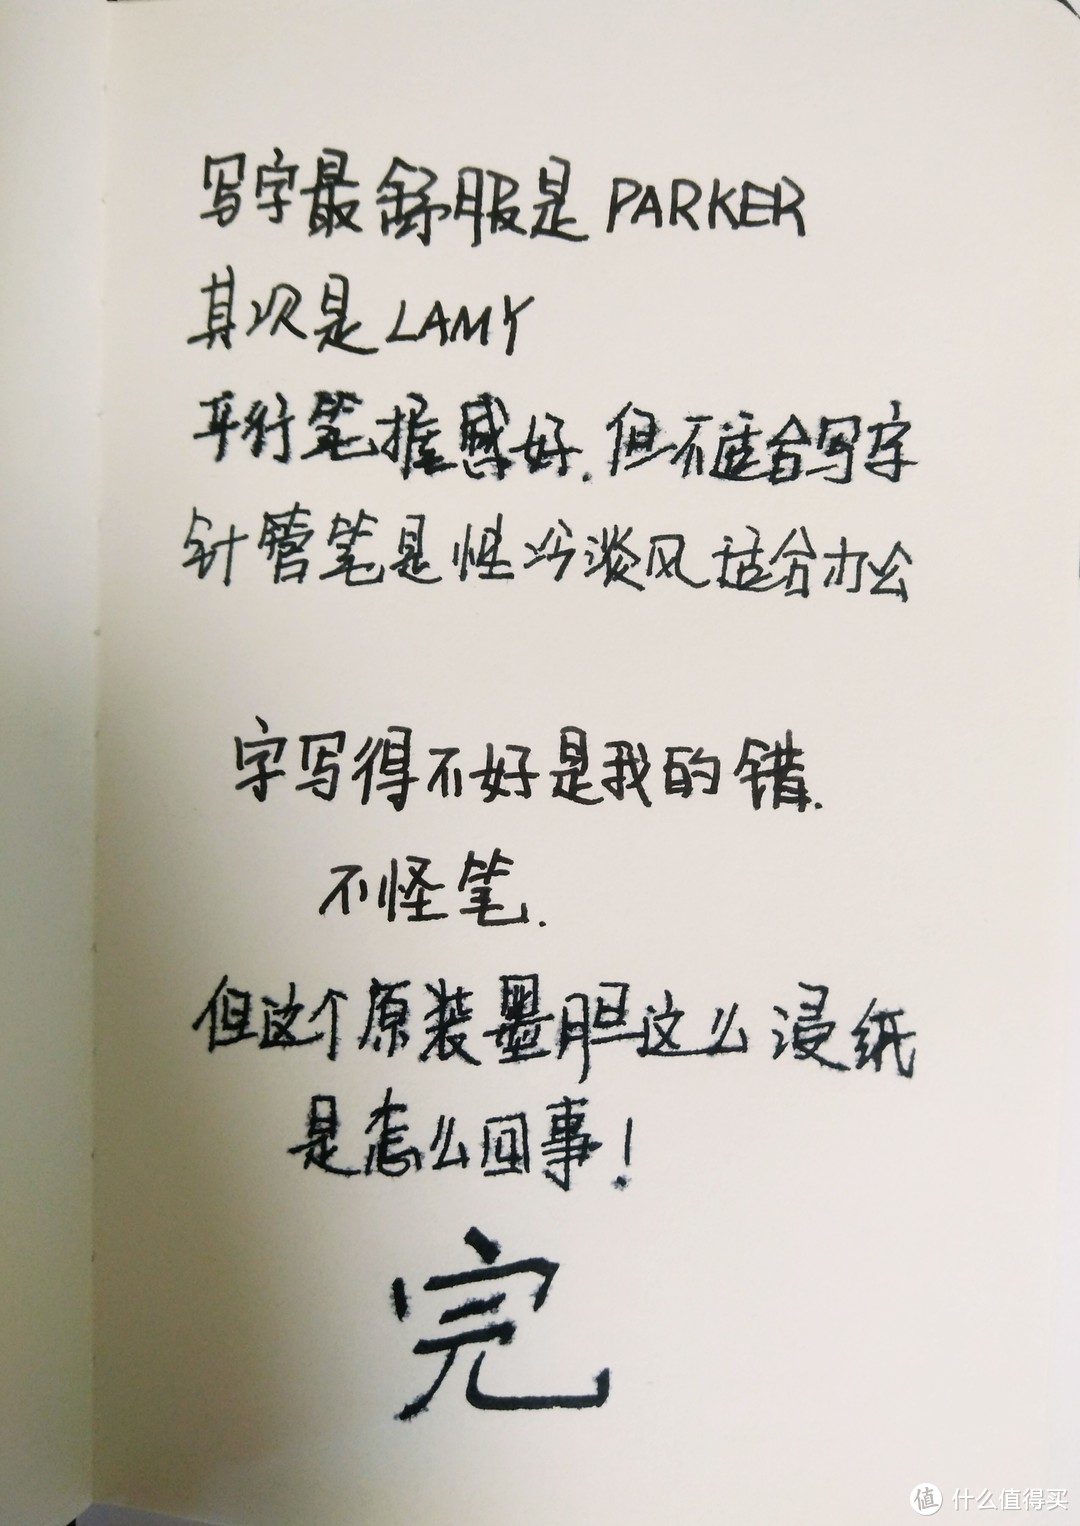 写字最舒服是 PARKER
其次是 LAMY
平行笔握感好.但不适合写字
针管笔是性冷淡风适合办公
字写得不好是我的错.
不怪笔.
但这个原装墨胆这么浸纸
是怎么回事!
完
值 什么值得买